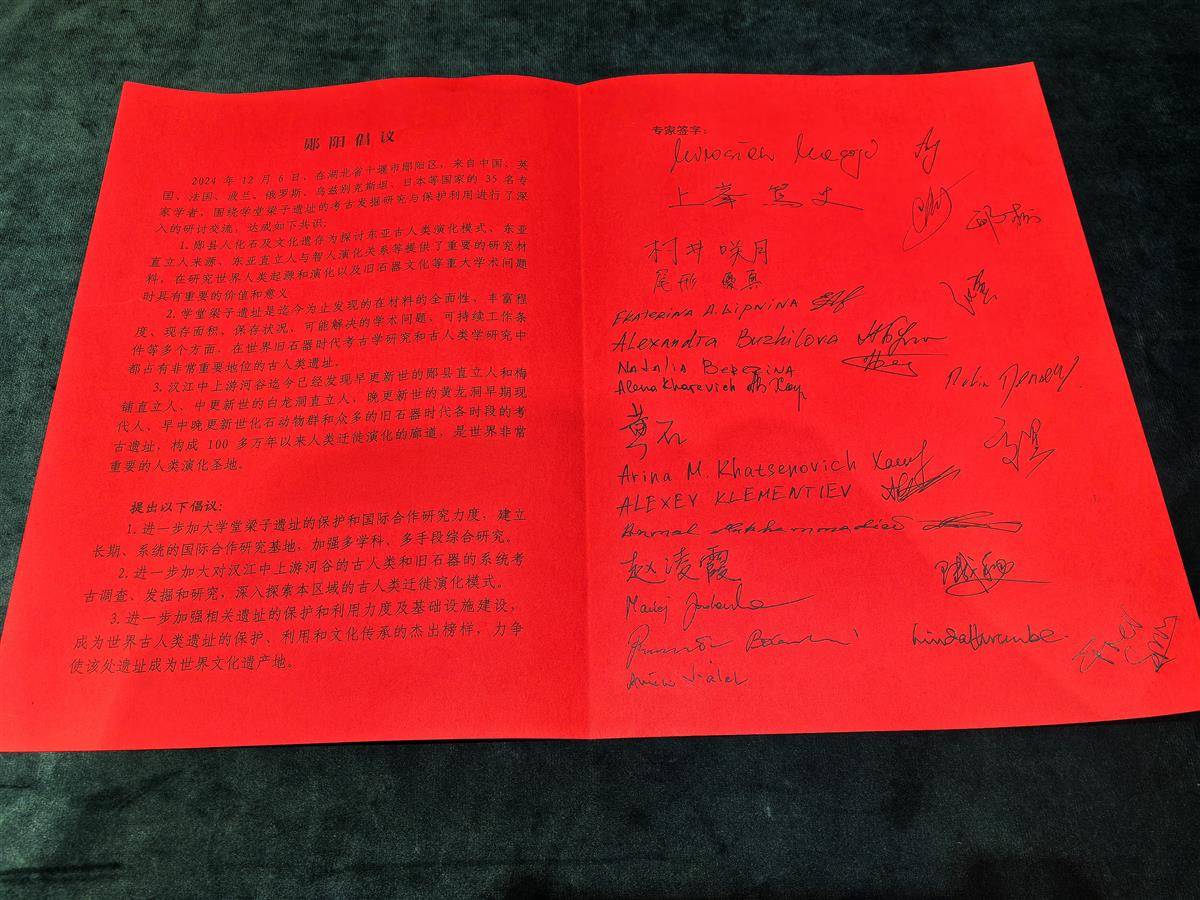 郧阳倡议
2024 年 12 月 6 日，在湖北省十堰市郧阳区，来自中国、英
国、法国、波兰、俄罗斯、乌兹别克斯坦、日本等国家的 35 名专
家学者，围绕学堂梁子遗址的考古发掘研究与保护利用进行了深
入的研讨交流，达成如下共识：
1. 郧县人化石及文化遗存为探讨东亚古人类演化模式、东亚
直立人来源、东亚直立人与智人演化关系等提供了重要的研究材
料，在研究世界人类起源和演化以及旧石器文化等重大学术问题
时具有重要的价值和意义
2. 学堂梁子遗址是迄今为止发现的在材料的全面性，丰富程
度、现存面积，保存状况、可能解决的学术问题、可持续工作条
件等多个方面，在世界旧石器时代考古学研究和古人类学研究中
都占有非常重要地位的古人类遗址。
3. 汉江中上游河谷迄今已经发现早更新世的郧县直立人和梅
铺直立人、中更新世的白龙洞直立人，晚更新世的黄龙洞早期现
代人、早中晚更新世化石动物群和众多的旧石器时代各时段的考
古遗址，构成 100 多万年以来人类迁徙演化的廊道，是世界非常
重要的人类演化圣地。
提出以下倡议：
1. 进一步加大学堂梁子遗址的保护和国际合作研究力度，建立
长期、系统的国际合作研究基地，加强多学科、多手段综合研究。
2. 进一步加大对汉江中上游河谷的古人类和旧石器的系统考
古调查、发掘和研究，深入探索本区域的古人类迁徙演化模式。
3. 进一步加强相关遗址的保护和利用力度及基础设施建设，
成为世界古人类遗址的保护、利用和文化传承的杰出榜样，力争
使该处遗址成为世界文化遗产地。
专家签字：
上峯 篤史
村井 咲月
尾形 優真
EKATERINA A. LIPNINA
Alexandra Buzhilova
NATALIA BEREZINA
Alena Kharevich
黄石
Arina M. Khatsenovich
ALEXEY KLEMENTIEV
赵凌霞
Maciej